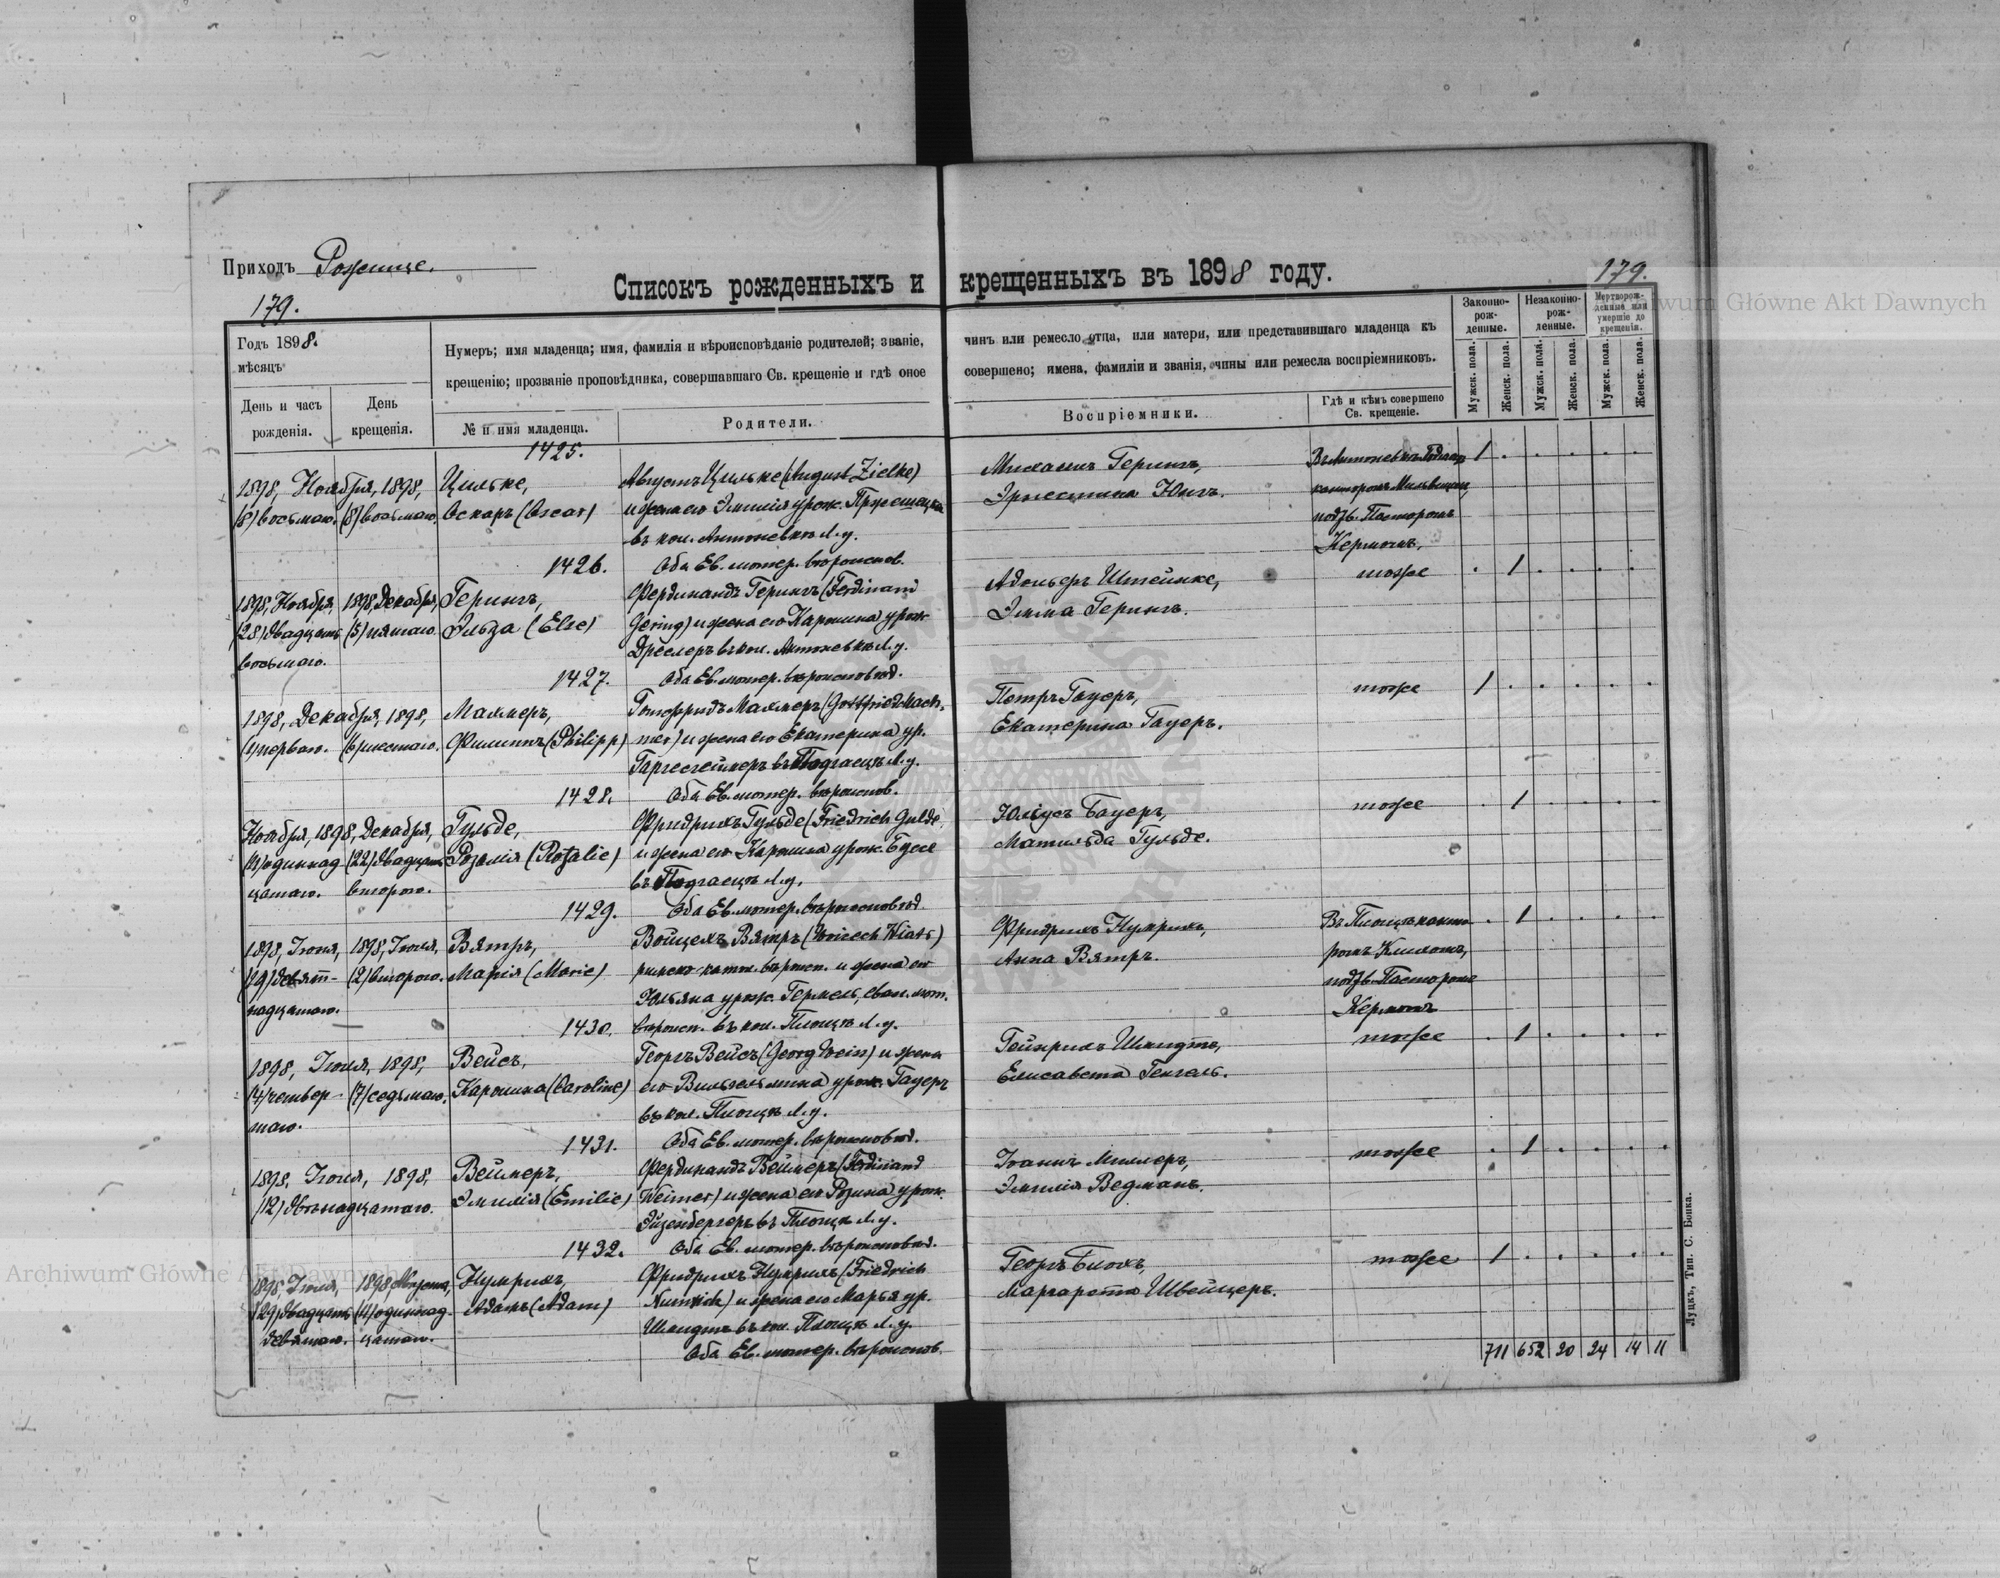 Приходъ Рожище.
179.
Списокъ рожденныхъ и крещенныхъ въ 1898 году.
179.
Годъ 1898.
мѣсяцъ
День и часъ рожденія.
День крещенія.
Нумеръ; имя младенца; имя, фамилія и вѣроисповѣданіе родителей; званіе,
чинъ или ремесло отца, или матери, или представившаго младенца къ
крещенію; прозваніе проповѣдника, совершавшаго Св. крещеніе и гдѣ оное
совершено; имена, фамиліи и званія, чины или ремесла воспріемниковъ.
№ и имя младенца.
Родители.
Воспріемники.
Гдѣ и кѣмъ совершено
Св. крещеніе.
Законно-
рож-
денные.
Незаконно-
рож-
денные.
Мертворож-
денные или
умершіе до
крещенія.
Мужск. пола.
Женск. пола.
Мужск. пола.
Женск. пола.
Мужск. пола.
Женск. пола.
1425.
1898, Ноября, 1898,
(8) восьмого. (8) восьмого.
Цильке,
Оскаръ (Oscar)
Августъ Цильке (August Zielke)
и жена его Эмилія урож.
въ кол. Антоневкѣ Л. у.
Оба Ев. лютер. вѣроиспов.
Михаилъ Герингъ,
Эрнестина Юнгъ.
подтв. Пасторомъ
Кермомъ,
1
1426.
1898, Ноября, 1898, Декабря,
(28) двадцать (5) пятого.
восьмого.
Герингъ,
Эльза (Else)
Фердинандъ Герингъ (Ferdinand
Göring) и жена его Каролина урож.
Дреслеръ въ кол. Антоневкѣ Л. у.
Оба Ев. лютер. вѣроисповѣд.
Адольфъ Штейнке,
Эмма Герингъ.
тоже
1
1427.
1898, Декабря, 1898,
(1) первого. (6) шестого.
Махмеръ,
Филиппъ (Philipp)
Готфридъ Махмеръ (Gottfried Mach-
mer) и жена его Екатерина ур.
въ Подгаецъ Л. у.
Оба Ев. лютер. вѣроиспов.
Петръ Гауеръ,
Екатерина Гауеръ.
тоже
1
1428.
Ноября, 1898, Декабря,
(11) одиннад- (22) двадцать
цатого. второго.
Гульде,
Розалія (Rosalie)
Фридрихъ Гульде (Friedrich Gulde,
и жена его Каролина урож. Буссе
въ Подгаецъ Л. у.
Оба Ев. лютер. вѣроисповѣд.
Юліусъ Бауеръ,
Матильда Гульде.
тоже
1
1429.
1898, Іюня, 1898, Іюля,
(19) девят- (2) второго.
надцатого.
Вятръ,
Марія (Marie)
Войцехъ Вятръ (Woicech Wiatr)
римско-катол. вѣроисп. и жена его
Юльяна урож. Гермель, еван. лют.
вѣроисп. въ кол. Площѣ Л. у.
Фридрихъ Нумрихъ,
Анна Вятръ.
подтв. Пасторомъ
Кермомъ
1
1430.
1898, Іюля, 1898,
(4) четвер- (7) седьмого.
того.
Вейсъ,
Каролина (Caroline)
Георгъ Вейсъ (Georg Weiss) и жена
его Вильгельмина урож. Гауеръ
въ кол. Площѣ Л. у.
Оба Ев. лютер. вѣроисповѣд.
Гейнрихъ Шмидтъ,
Елисавета Генгель.
тоже
1
1431.
1898, Іюля, 1898,
(12) двѣнадцатого.
Веймеръ,
Эмилія (Emilie)
Фердинандъ Веймеръ (Ferdinand
Weimer) и жена его Розина урож.
Эйзенбергеръ въ Площѣ Л. у.
Оба Ев. лютер. вѣроисповѣд.
Іоаннъ Миллеръ,
Эмилія Ведманъ.
тоже
1
1432.
1898, Іюля, 1898, Августа,
(29) двадцать (11) одиннад-
девятого. цатого.
Нумрихъ,
Адамъ (Adam)
Фридрихъ Нумрихъ (Friedrich
Numrich) и жена его Марья ур.
Шмидтъ въ кол. Площѣ Л. у.
Оба Ев. лютер. вѣроиспов.
Георгъ Блохъ,
Маргарета Швейцеръ.
тоже
1
711 652 20 24 14 11
Луцкъ, Тип. С. Бонка.
Archiwum Główne Akt Dawnych
Archiwum Główne Akt Dawnych